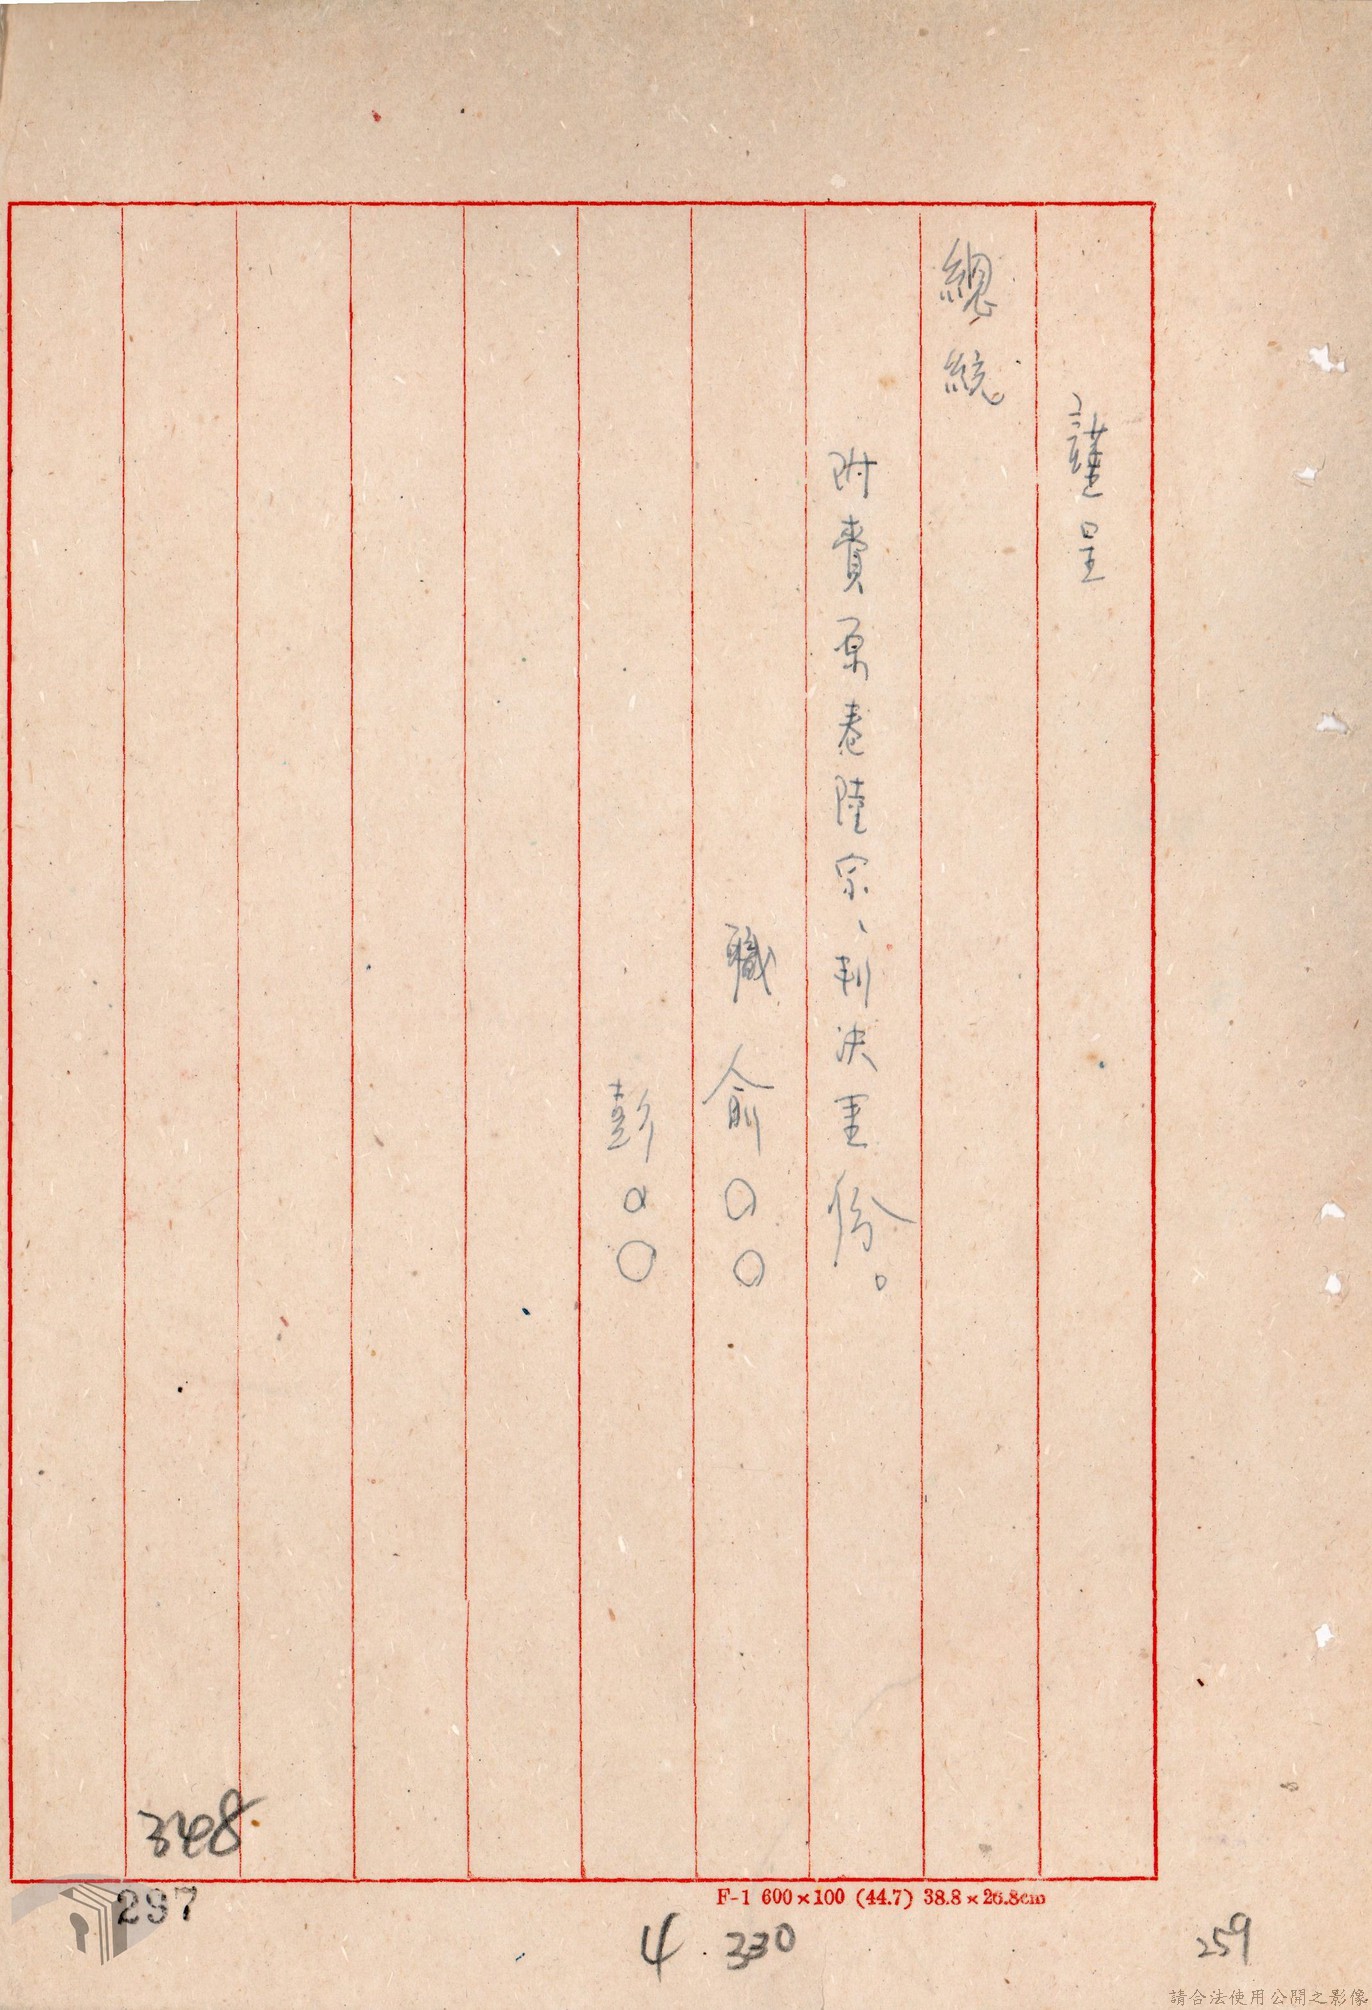 謹呈
總統
附賫原卷陸宗、判決壹份。
職 俞○○
彭○○
348
297
F-1 600×100 (44.7) 38.8×26.8cm
4.330
259
請合法使用公開之影像